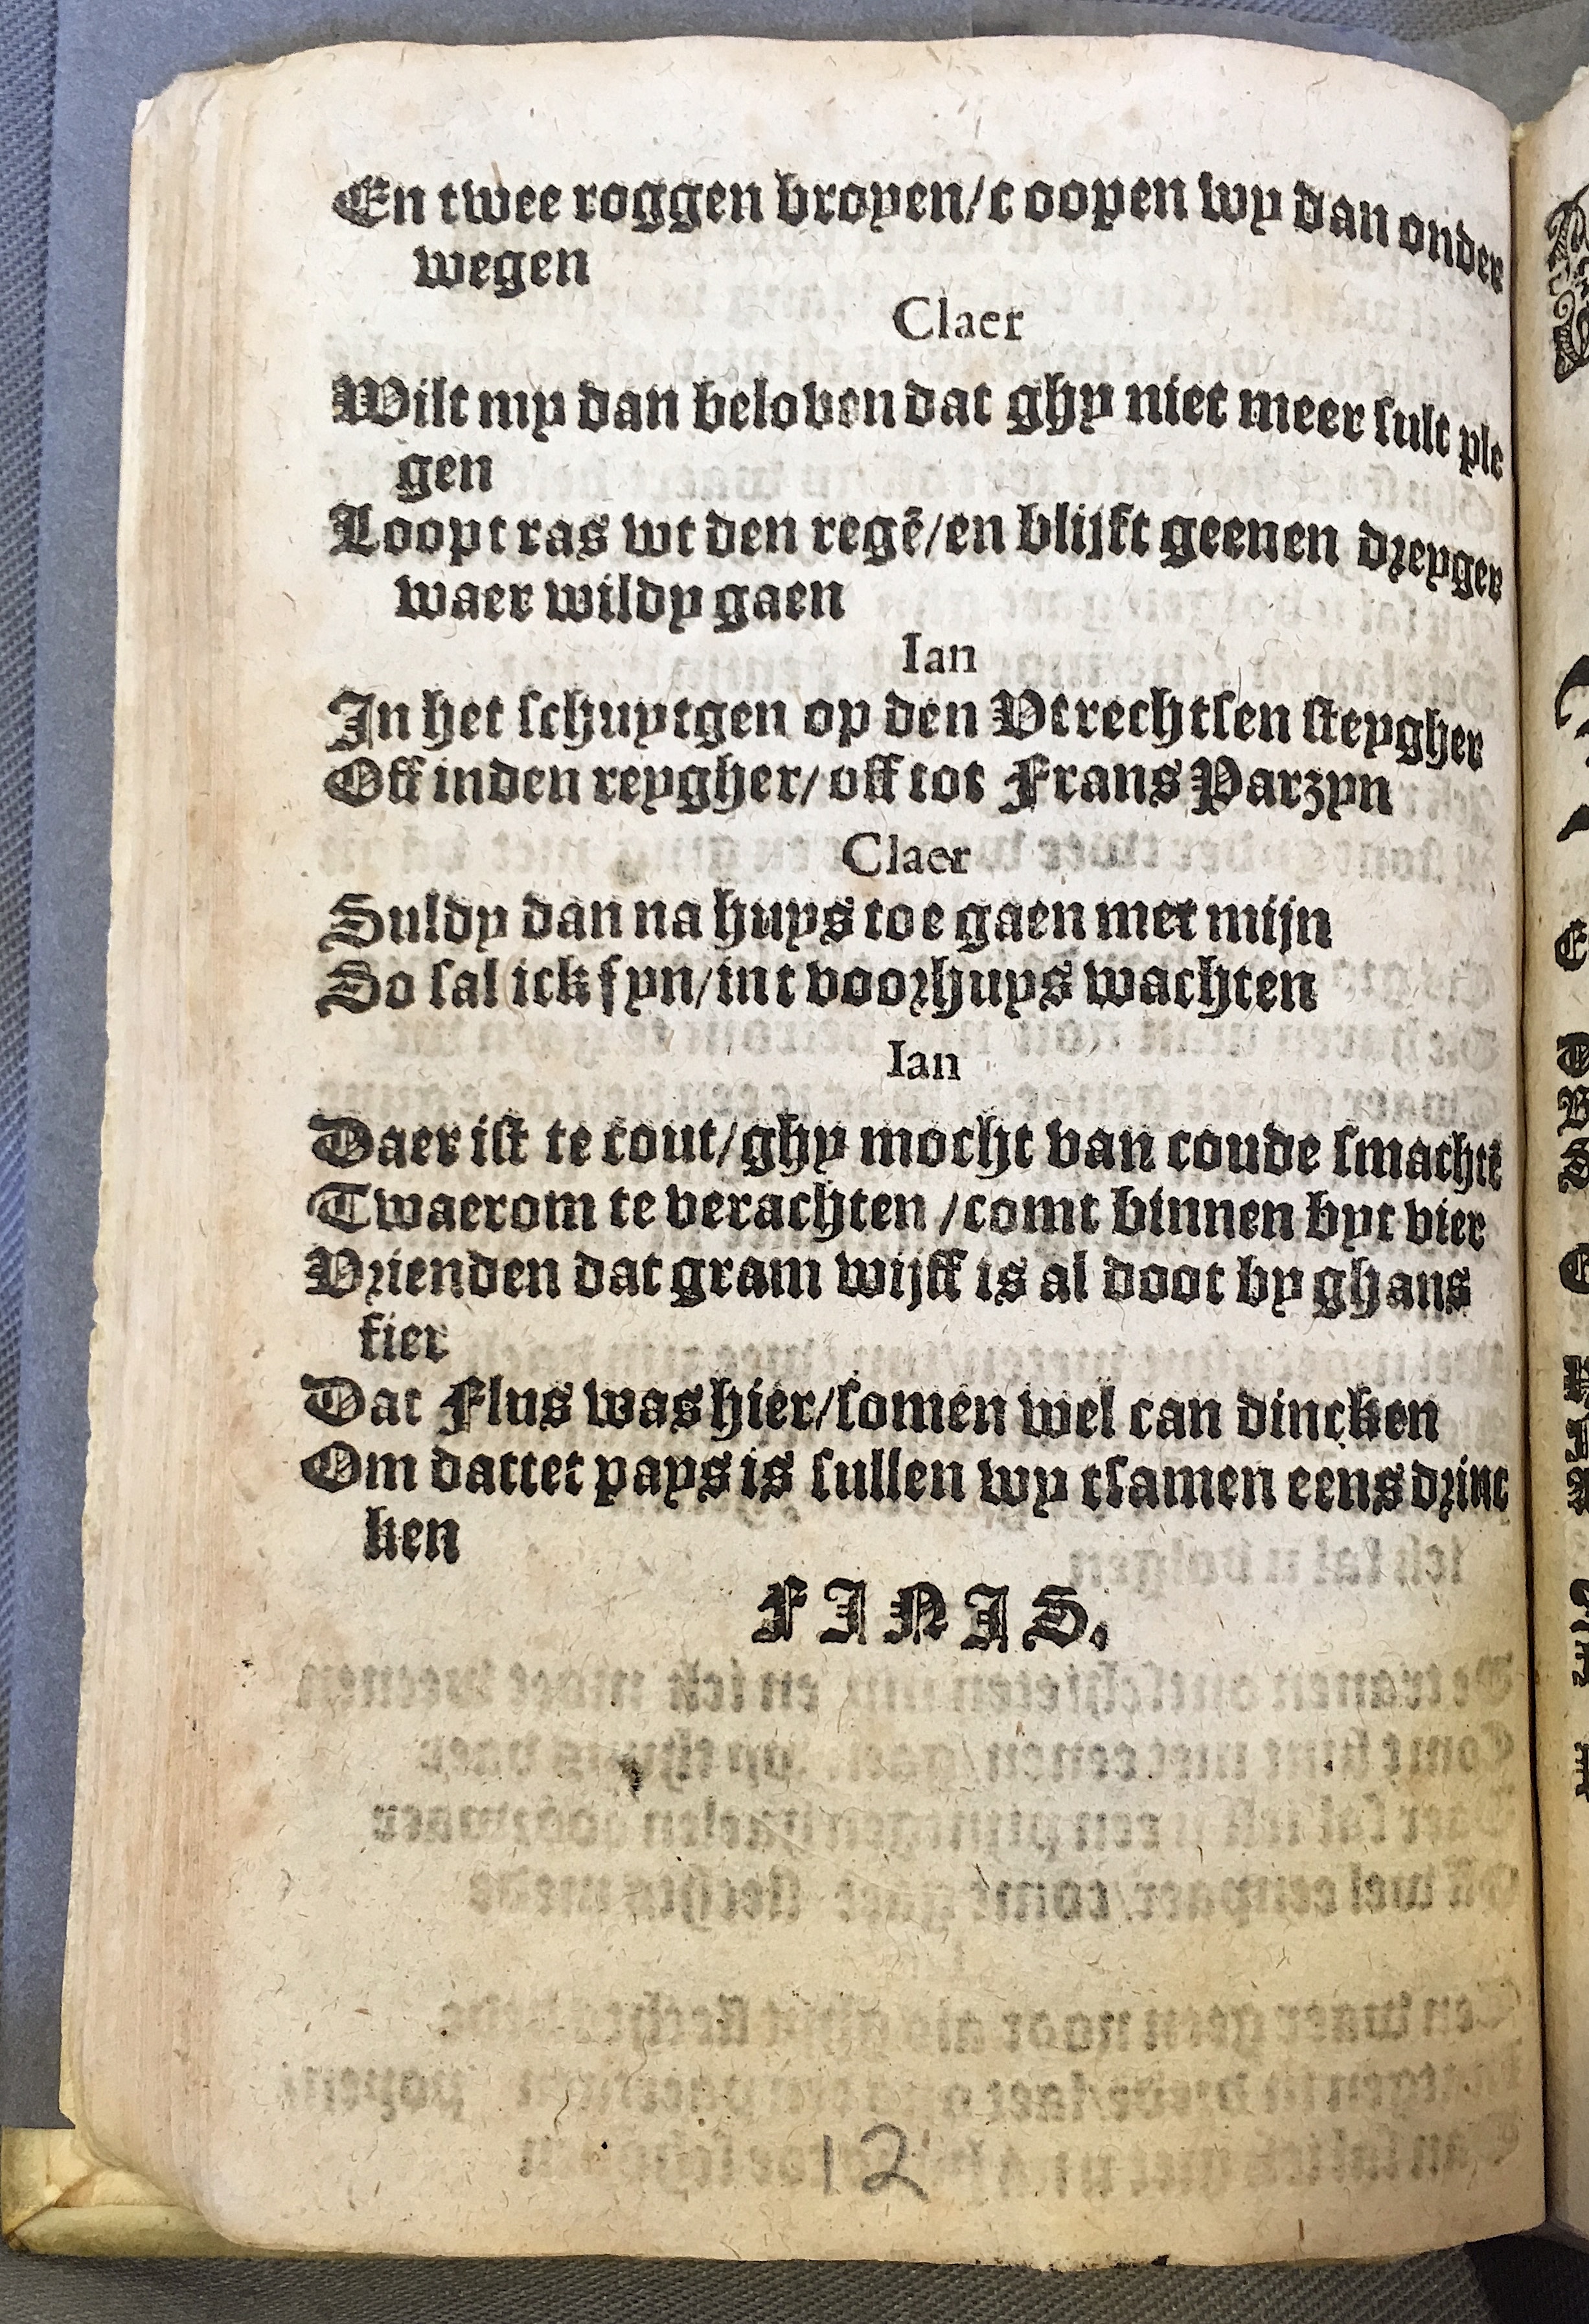 En twee roggen broyen/c oopen wy dan onder
wegen
Claer
Wilt my dan beloven dat ghy niet meer sult ple
gen
Loopt ras wt den regē/en blijft geenen dreyger
waer wildy gaen
Ian
In het schuytgen op den Vtrechtsen steygher
Off inden reygher/off tot Frans Parzyn
Claer
Suldy dan na huys toe gaen met mijn
So sal ick fyn/int voorhuys wachten
Ian
Daer ist te cout/ghy mocht van coude smachtē
Twaerom te verachten /comt binnen byt vier
Vrienden dat gram wijff is al doot by ghans
fier
Dat Flus was hier/somen wel can dincken
Om dattet pays is sullen wy tsamen eens drinc
ken
FINIS.
12